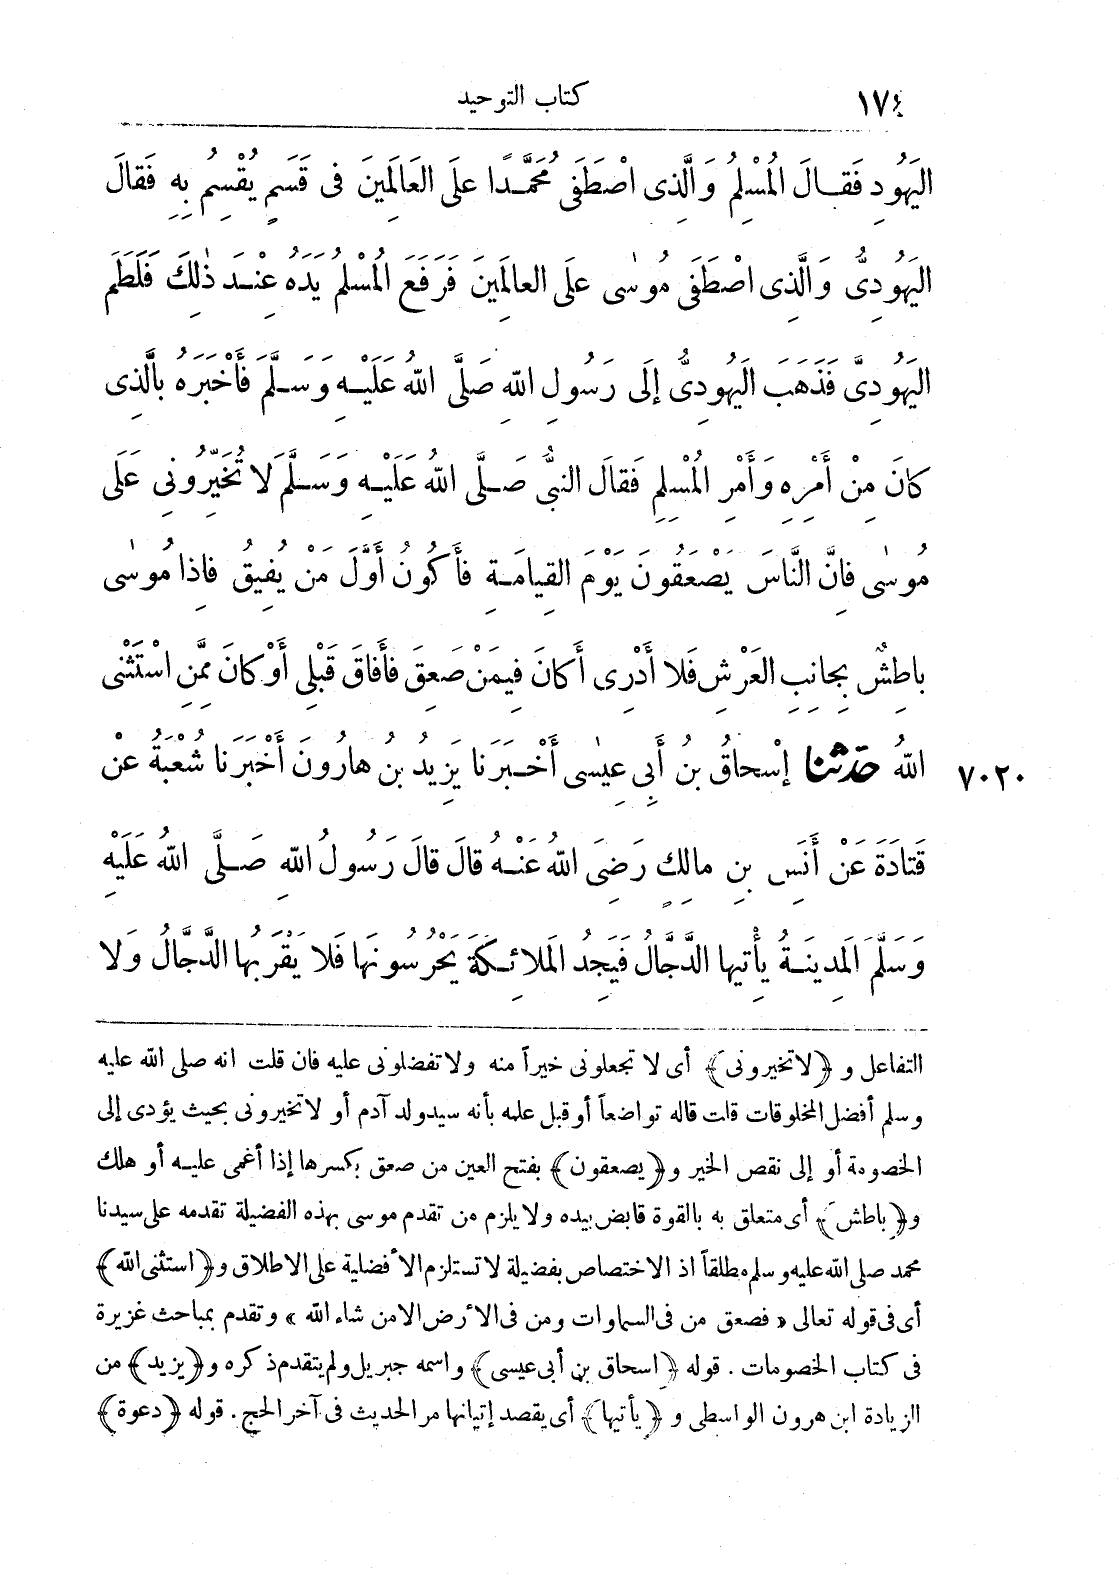 ١٧٤ كتاب التوحيد
اليَهُودِ فَقَالَ المُسْلِمُ وَالَّذِى اصْطَفَى مُحَمَّدًا عَلَى العَالَمِينَ فى قَسَمٍ يُقْسِمُ بِهِ فَقالَ
اليَهُودِىُّ وَالَّذِى اصْطَفَى مُوسٰى عَلَى العالَمِينَ فَرَفَعَ المُسْلِمُ يَدَهُ عِنْدَ ذٰلِكَ فَلَطَمَ
اليَهُودِىَّ فَذَهَبَ اليَهُودِىُّ إلَى رَسُولِ اللهِ صَلَّى اللهُ عَلَيْهِ وَسَلَّمَ فَأَخْبَرَهُ بِالَّذِى
كانَ مِنْ أَمْرِهِ وَأَمْرِ المُسْلِمِ فَقالَ النبىُّ صَلَّى اللهُ عَلَيْهِ وَسَلَّمَ لا تُخَيِّرُونِى عَلَى
مُوسٰى فانَّ النَّاسَ يَصْعَقُونَ يَوْمَ القِيامَةِ فأَكُونُ أَوَّلَ مَنْ يُفِيقُ فاِذا مُوسٰى
باطِشٌ بِجانِبِ العَرْشِ فَلا أَدْرِى أَكانَ فِيمَنْ صَعِقَ فأَفاقَ قَبْلِى أَوْ كانَ مِمَّنِ اسْتَثْنى
اللهُ حَدثنا إسْحاقُ بنُ أَبِى عِيسٰى أَخْبَرَنا يَزِيدُ بنُ هارُونَ أَخْبَرَنا شُعْبَةُ عنْ ٧٠٢٠
قَتادَةَ عَنْ أَنَسِ بنِ مالِكٍ رَضِىَ اللهُ عَنْهُ قالَ قالَ رَسُولُ اللهِ صَلَّى اللهُ عَلَيْهِ
وَسَلَّمَ المَدِينَةُ يأْتِيها الدَّجَّالُ فَيَجِدُ المَلائِكَةَ يَحْرُسُونَها فَلا يَقْرَبُها الدَّجَّالُ وَلا
التفاعل و ﴿لاتخيرونى﴾ أى لا تجعلونى خيراً منه ولا تفضلونى عليه فان قلت انه صلى الله عليه
وسلم أفضل المخلوقات قلت قاله تواضعاً أو قبل علمه بأنه سيد ولد آدم أو لا تخيرونى بحيث يؤدى إلى
الخصومة أو إلى نقص الخير و﴿يصعقون﴾ بفتح العين من صعق بكسرها إذا أغمى عليه أو هلك
و﴿باطش﴾ أى متعلق به بالقوة قابض بيده ولا يلزم من تقدم موسى بهذه الفضيلة تقدمه على سيدنا
محمد صلى الله عليه وسلم مطلقاً اذ الاختصاص بفضيلة لا تستلزم الأفضلية على الاطلاق و﴿استثنى الله﴾
أى فى قوله تعالى « فصعق من فى السماوات ومن فى الأرض الا من شاء الله » وتقدم بمباحث غزيرة
فى كتاب الخصومات . قوله ﴿اسحاق بن أبى عيسى﴾ واسمه جبريل ولم يتقدم ذكره و﴿يزيد﴾ من
الزيادة ابن هرون الواسطى و ﴿يأتيها﴾ أى يقصد إتيانها مر الحديث فى آخر الحج . قوله ﴿دعوة﴾